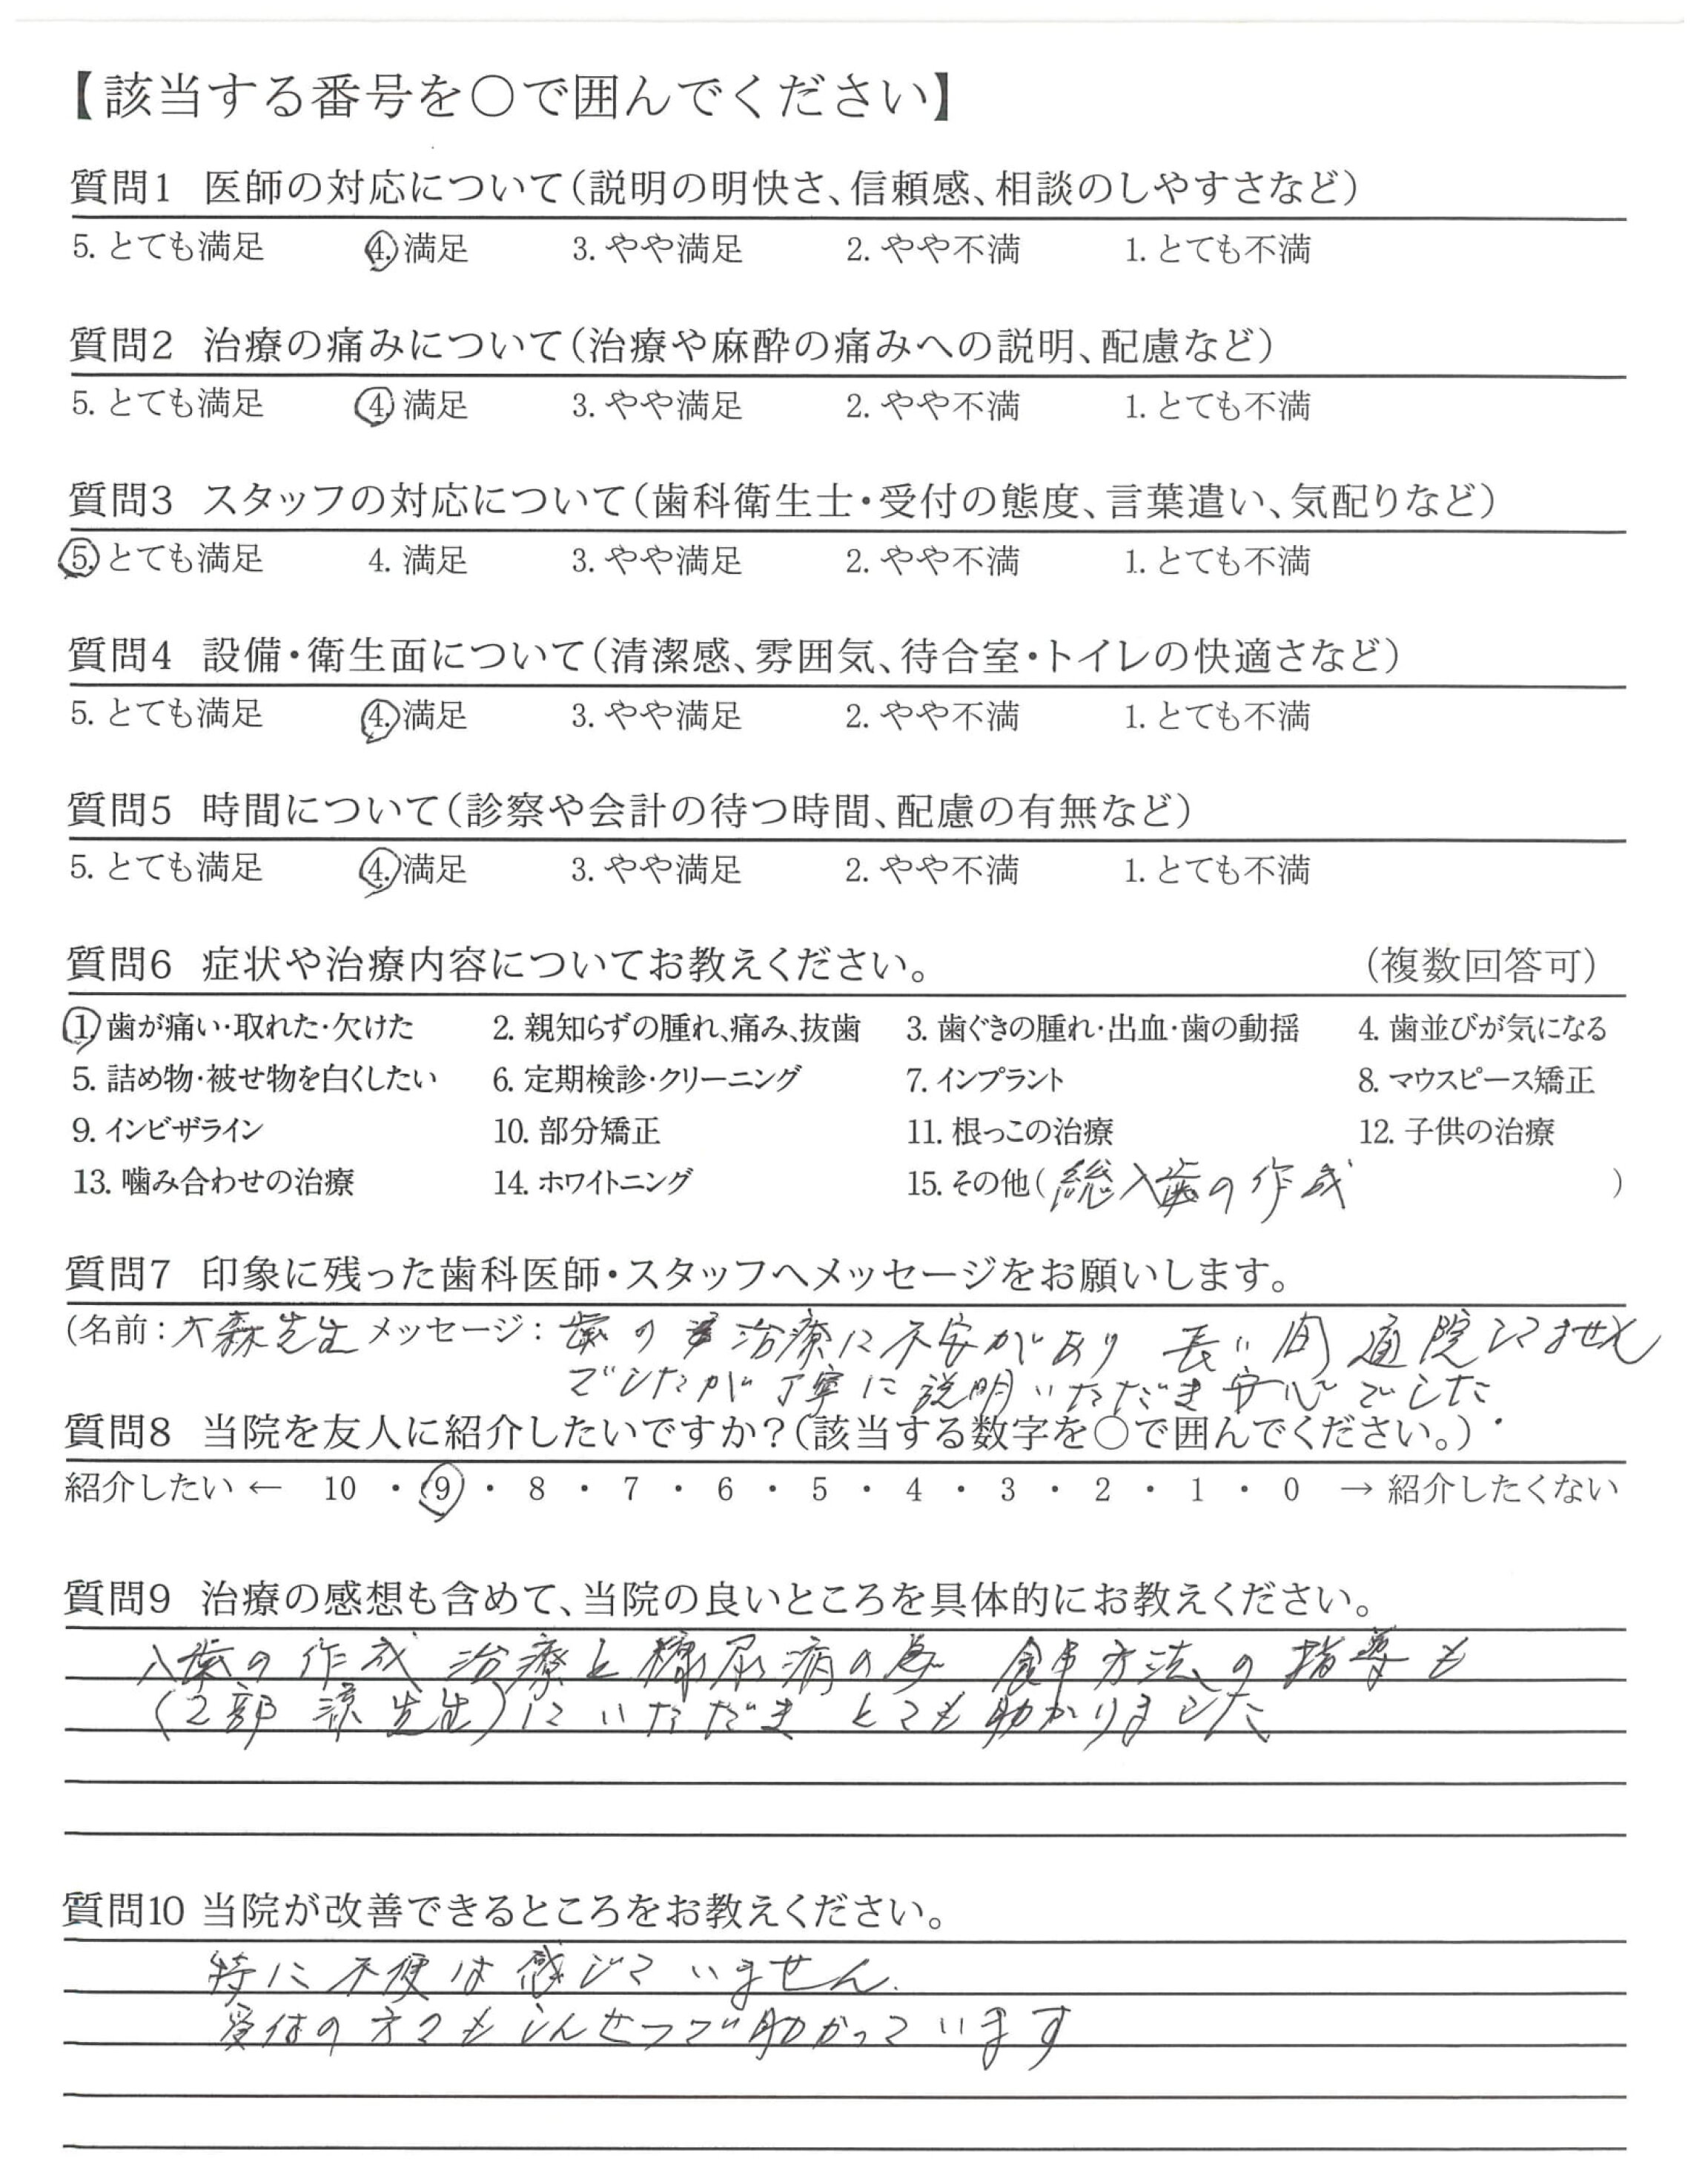 【該当する番号を○で囲んでください】
質問1 医師の対応について(説明の明快さ、信頼感、相談のしやすさなど)
5. とても満足 4. 満足 3. やや満足 2. やや不満 1. とても不満
質問2 治療の痛みについて(治療や麻酔の痛みへの説明、配慮など)
5. とても満足 4. 満足 3. やや満足 2. やや不満 1. とても不満
質問3 スタッフの対応について(歯科衛生士・受付の態度、言葉遣い、気配りなど)
5. とても満足 4. 満足 3. やや満足 2. やや不満 1. とても不満
質問4 設備・衛生面について(清潔感、雰囲気、待合室・トイレの快適さなど)
5. とても満足 4. 満足 3. やや満足 2. やや不満 1. とても不満
質問5 時間について(診察や会計の待つ時間、配慮の有無など)
5. とても満足 4. 満足 3. やや満足 2. やや不満 1. とても不満
質問6 症状や治療内容についてお教えください。 (複数回答可)
1. 歯が痛い・取れた・欠けた 2. 親知らずの腫れ、痛み、抜歯 3. 歯ぐきの腫れ・出血・歯の動揺 4. 歯並びが気になる
5. 詰め物・被せ物を白くしたい 6. 定期検診・クリーニング 7. インプラント 8. マウスピース矯正
9. インビザライン 10. 部分矯正 11. 根っこの治療 12. 子供の治療
13. 噛み合わせの治療 14. ホワイトニング 15. その他(総入歯の作成)
質問7 印象に残った歯科医師・スタッフへメッセージをお願いします。
(名前:大森先生 メッセージ:歯の治療に不安があり 長い間 通院してません
でしたが 丁寧に説明いただき安心でした
質問8 当院を友人に紹介したいですか?(該当する数字を○で囲んでください。)
紹介したい ← 10 ・ 9 ・ 8 ・ 7 ・ 6 ・ 5 ・ 4 ・ 3 ・ 2 ・ 1 ・ 0 → 紹介したくない
質問9 治療の感想も含めて、当院の良いところを具体的にお教えください。
入歯の作成 治療と糖尿病の為 食事方法の指導も
(部 涼先生)に いただき とても助かりました
質問10 当院が改善できるところをお教えください。
特に不便は感じていません.
受付の方々もしんせつで助かっています